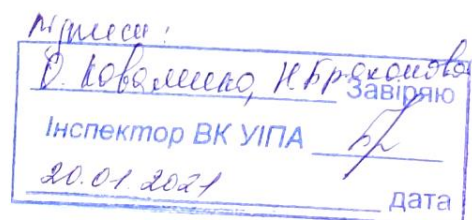 Підписи:
О. Коваленко, Н. Брюханова
Завіряю
Інспектор ВК УІПА
20.01.2021
дата